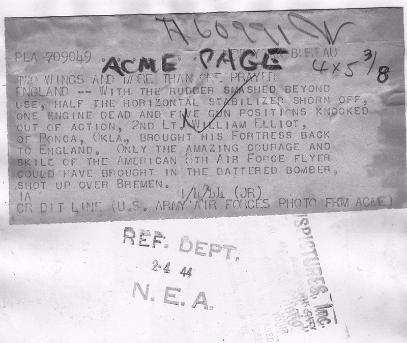 A60991
PLA 709049 BUREAU
ACME PAGE
4x5 3/8
TWO WINGS AND MORE THAN ONE PRAYER
ENGLAND -- WITH THE RUDDER SMASHED BEYOND
USE, HALF THE HORIZONTAL STABILIZER SHORN OFF,
ONE ENGINE DEAD AND FIVE GUN POSITIONS KNOCKED
OUT OF ACTION, 2ND LT. WILLIAM ELLIOT,
OF PONCA, OKLA, BROUGHT HIS FORTRESS BACK
TO ENGLAND. ONLY THE AMAZING COURAGE AND
SKILL OF THE AMERICAN 8TH AIR FORCE FLYER
COULD HAVE BROUGHT IN THE BATTERED BOMBER,
SHOT UP OVER BREMEN.
1A 1/4/44 (JR)
CREDIT LINE (U.S. ARMY AIR FORCES PHOTO FRM ACME)
REF. DEPT.
2-4 44
N.E.A.
PICTURES, INC.